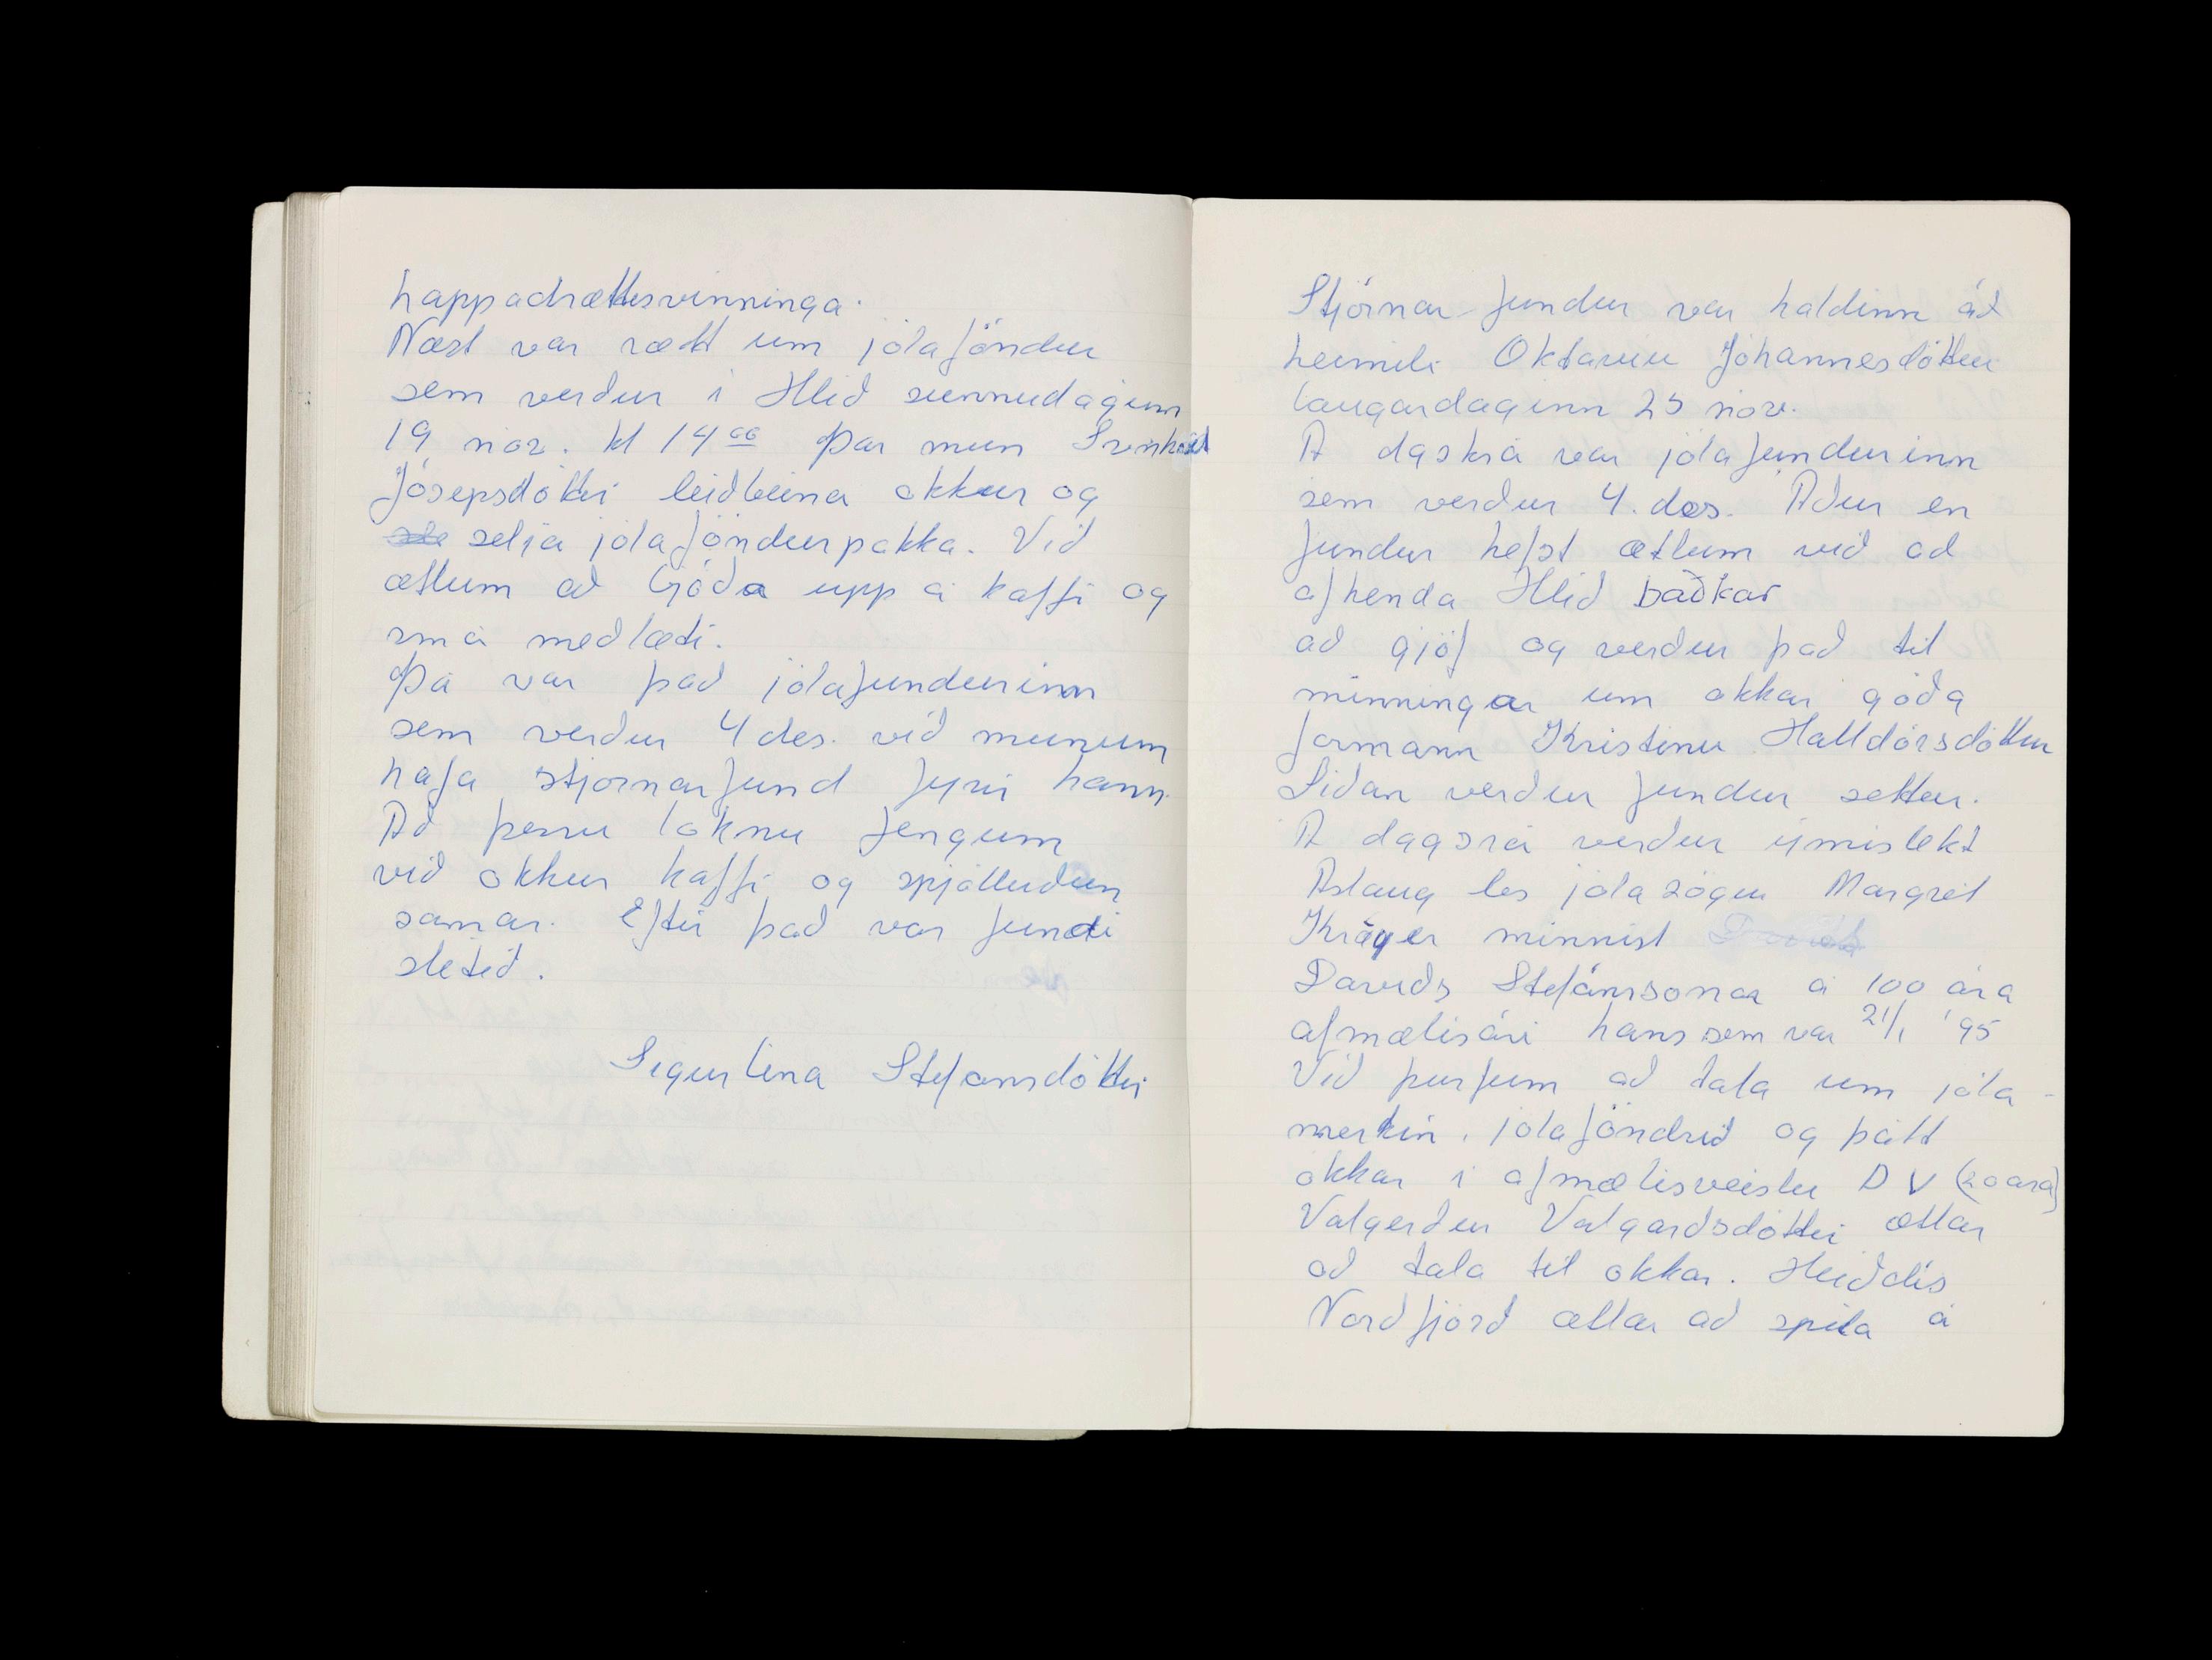 happadrættisvinninga.
Næst var rætt um jólaföndur
sem verður í Hlíð sunnudaginn
19 nóv. kl 14 00 Þar mun
Jósepsdóttir leiðbeina okkur og
selja jólaföndurpakka. Við
ætlum að Góða upp á kaffi og
smá meðlæti.
Þá var það jólafundurinn
sem verður 4 des. við munum
hafa stjornarfund fyrir hann.
Að þessu loknu fengum
við okkur kaffi og spjölluðum
saman. Eftir það var fundi
slitið.
Sigurlína Stefansdóttir
Stjórnar fundur var haldinn át
heimili Oktavíu Jóhannesdóttur
laugardaginn 25 nóv.
A daskrá var jólafundurinn
sem verður 4. des. Aður en
fundur hefst ætlum við að
afhenda Hlíð baðkar
að gjöf og verður það til
minningar um okkar góða
formann Kristínu Halldórsdóttur
Síðan verður fundur settur.
A dagsrá verður ýmislekt
Aslaug les jólasögu Margrét
Kröyer minnist
Davíðs Stefánssonar á 100 ára
afmælisári hans sem var 21/1 '95
Við þurfum að tala um jóla-
merkin, jólaföndrið og þátt
okkar í afmælisveislu D V (20 ara)
Valgerður Valgarðsdóttir ætlar
að tala til okkar. Heiðdís
Norðfjörð ætlar að spila á